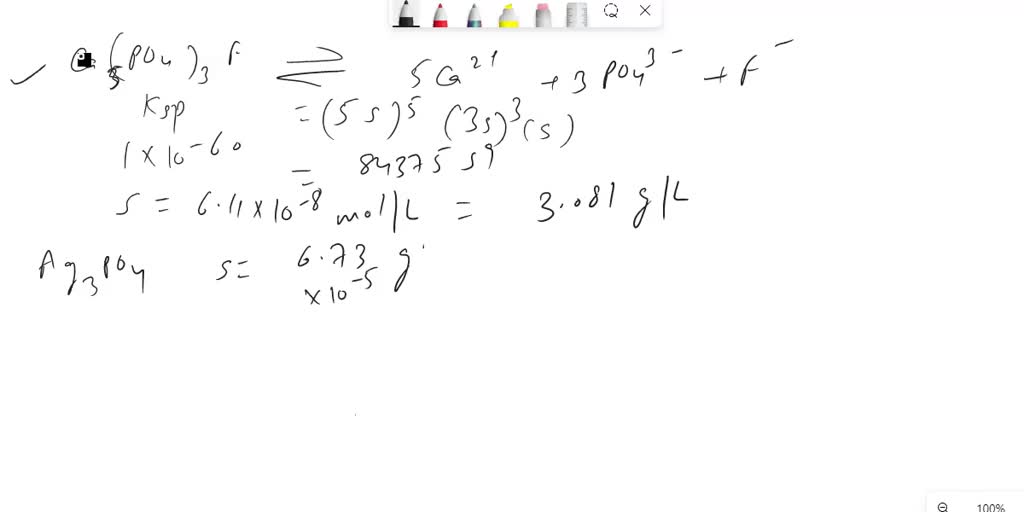 ✓ Ca5(PO4)3F ⇌ 5Ca2+ + 3PO43- + F-
Ksp = (5s)5 (3s)3(s)
1×10-60 = 84375 s9
s = 6.11×10-8 mol/L = 3.081 g/L
Ag3PO4 s= 6.73 ×10-5 g
100%